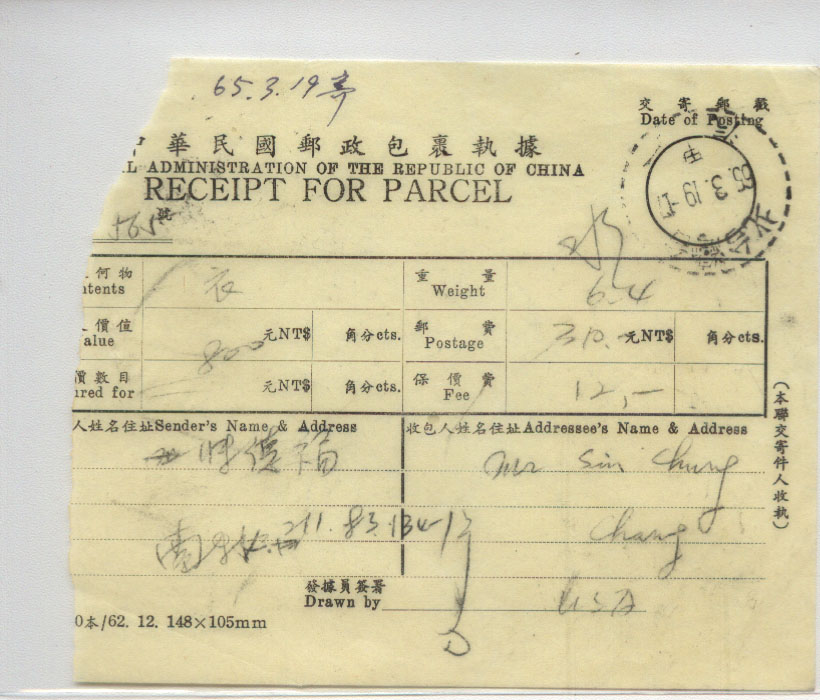 65.3.19寄
交寄郵戳
Date of Posting
華民國郵政包裹執據
L ADMINISTRATION OF THE REPUBLIC OF CHINA
RECEIPT FOR PARCEL
65.3.19
何物
ntents
衣
重量
Weight
6.4
價值
alue
800
元NT$
角分cts.
郵費
Postage
30.
元NT$
角分cts.
價數目
ured for
元NT$
角分cts.
保價費
Fee
12,—
人姓名住址Sender's Name & Address
收包人姓名住址Addressee's Name & Address
陳德福
Mr Sin Chung
Chang
USA
發據員簽署
Drawn by
0本/62. 12. 148×105mm
(本聯交寄件人收執)